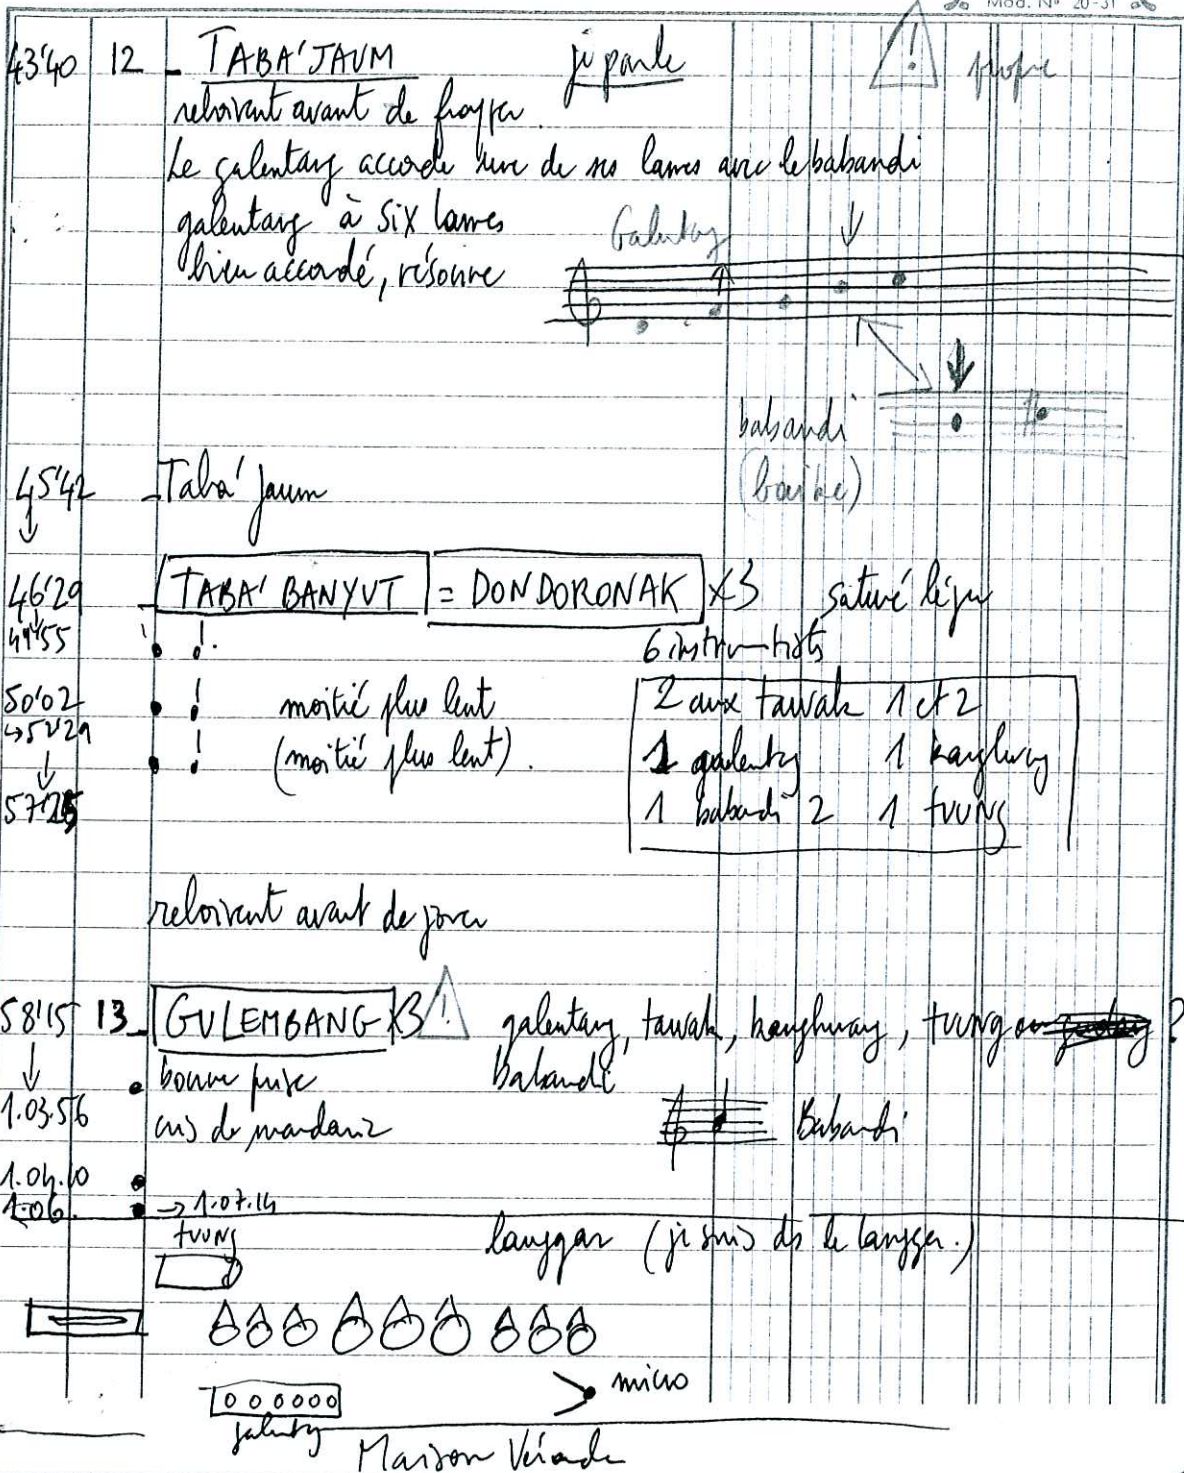 Mod. Nº 20-31
43'40 12 - TABA' JAUM je parle
reboivent avant de frapper.
Le galentang accorde une de ses lames avec le babandi
galentang à six lames
bien accordé, résonne
Galentang
babandi
45'42 - Taba' Jaum
46'29 - TABA' BANYUT = DONDORONAK x3 saturé léger
6 instrumentists
50'02 moitié plus lent
(moitié plus lent).
57'25
2 aux tawak 1 et 2
1 galentang
1 babandi 2 1 tuung
reboivent avant de jouer
58'15 13 - GULEMBANG x3 galentang, tawak, , tuung ou ?
babandi
bonne prise
1.03.56 cris de Babandi
1.04.10
1.06. → 1.07.14
tuung
langgar (je suis ds le langgar.)
micro
galentang
Maison Véranda